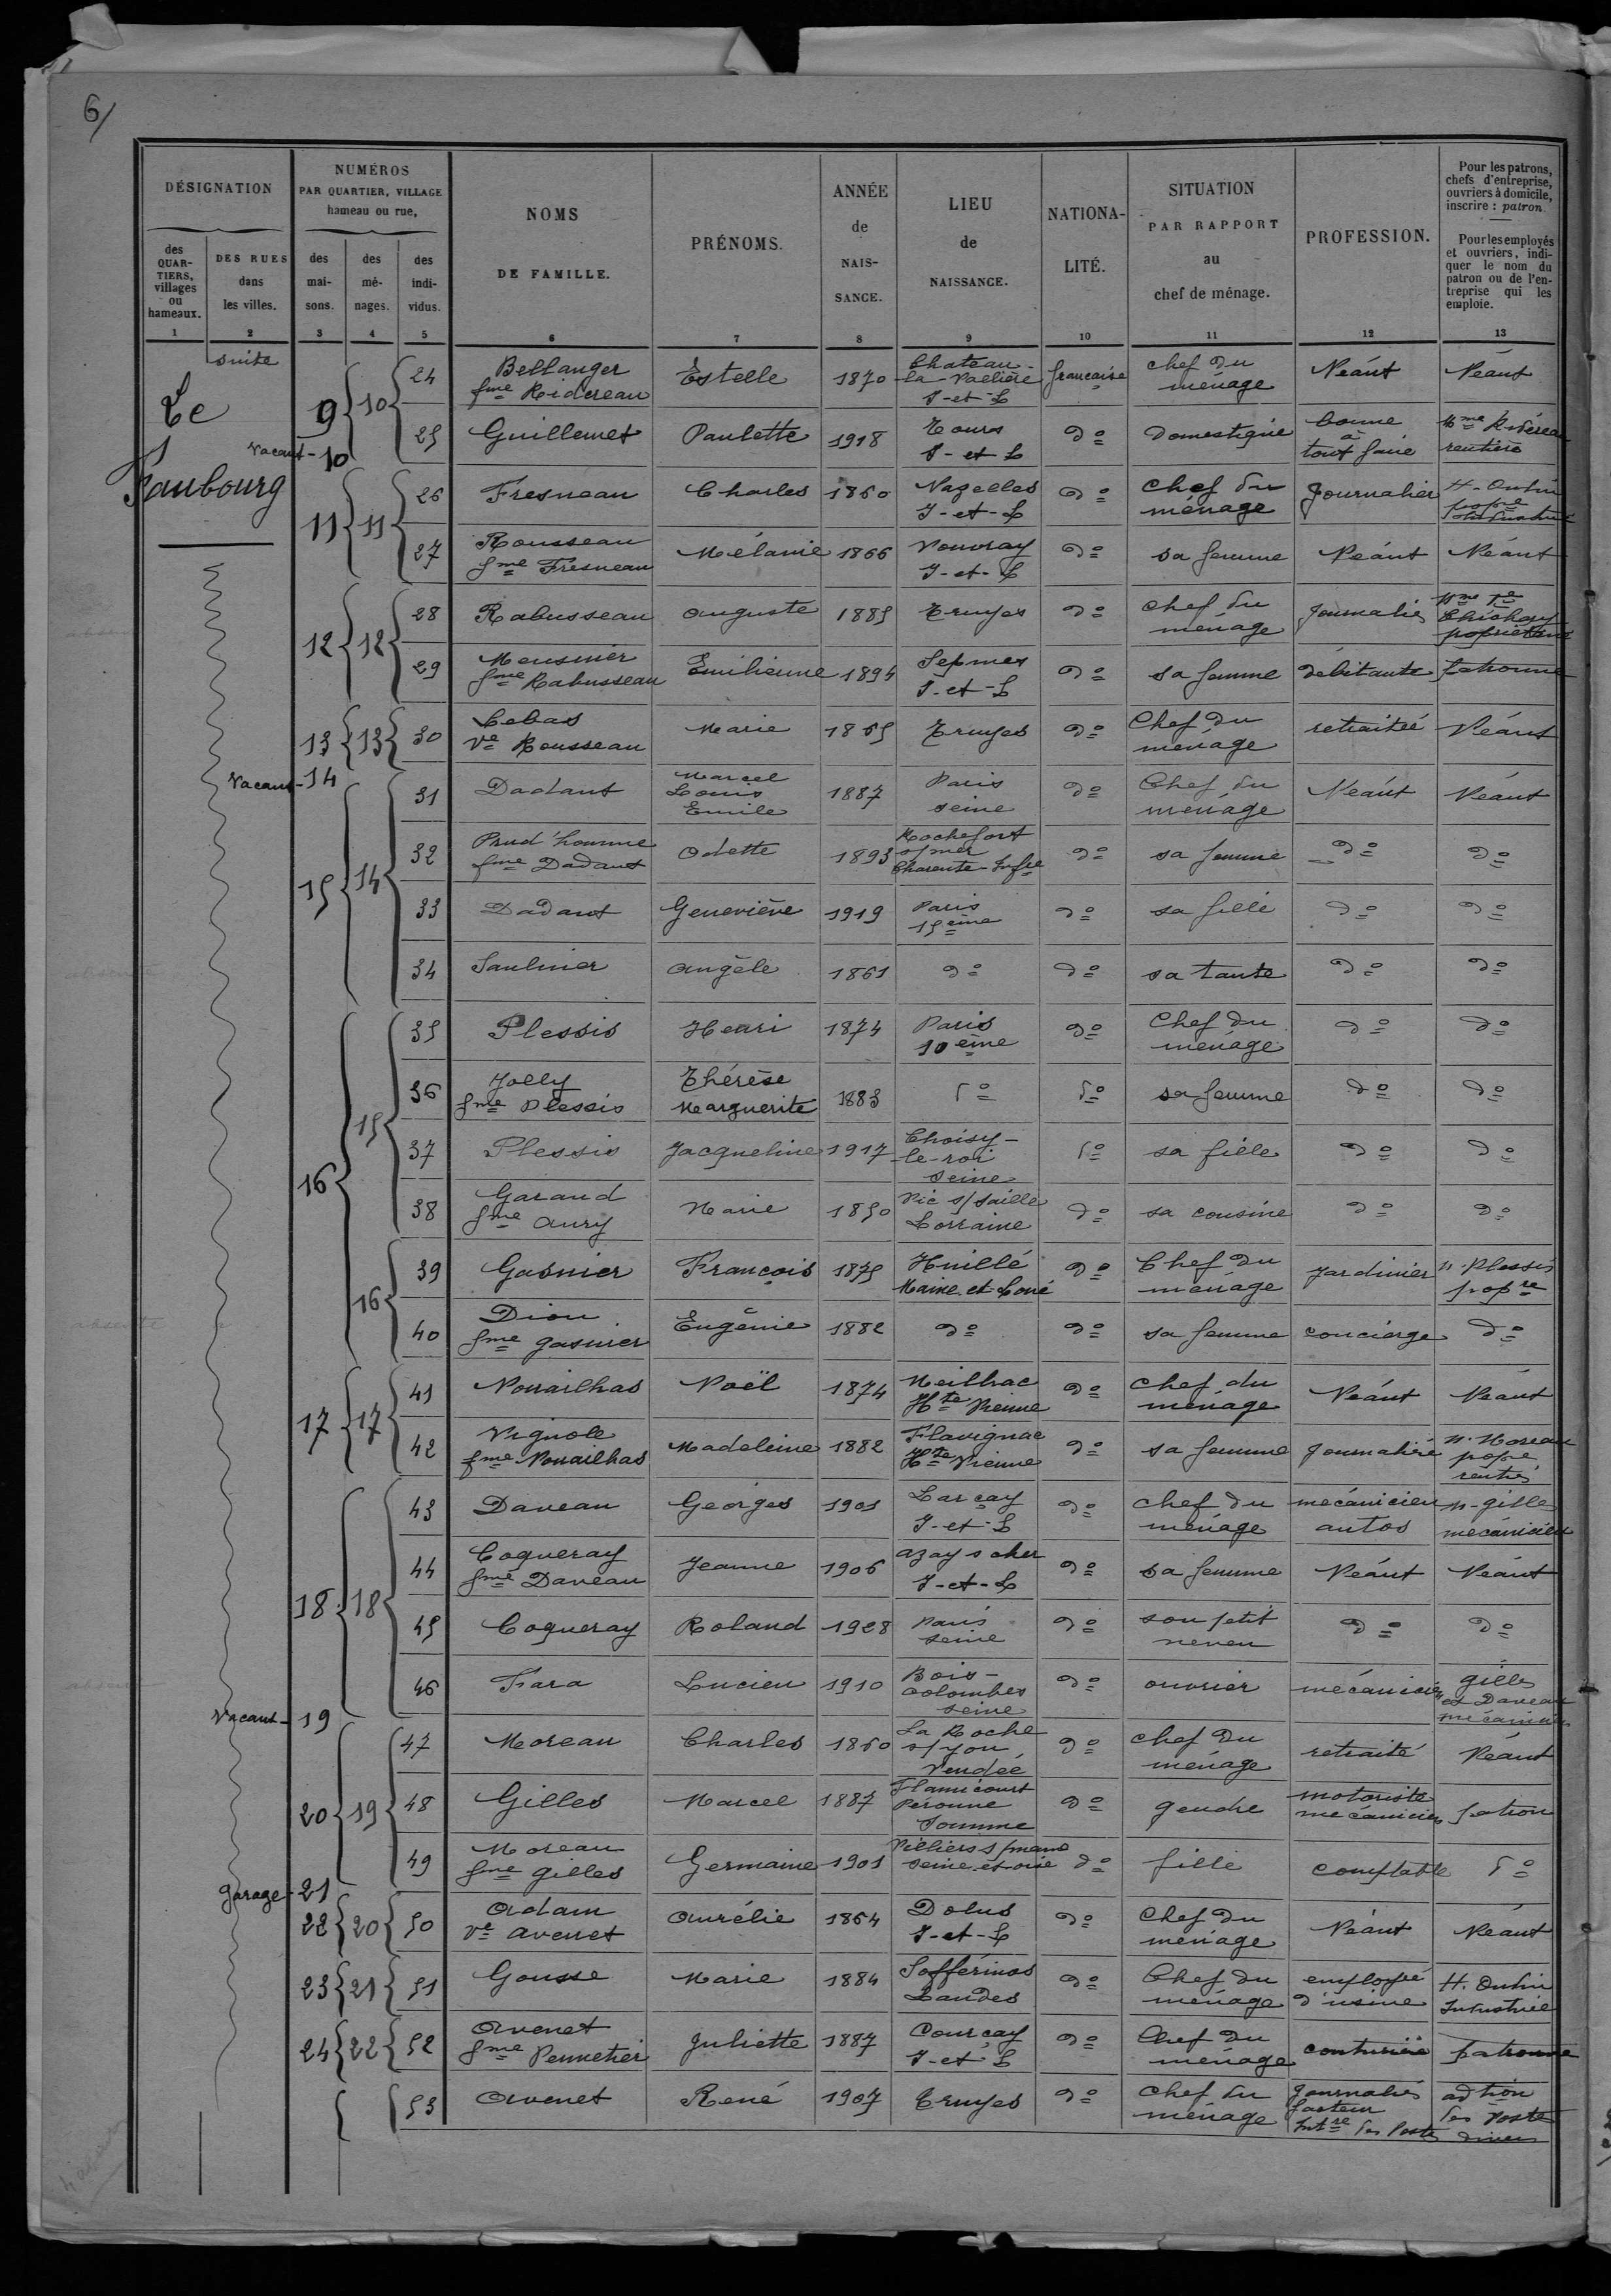 6/
DÉSIGNATION
NUMÉROS
PAR QUARTIER, VILLAGE
hameau ou rue,
des QUARTIERS, villages ou hameaux.
DES RUES dans les villes.
des maisons.
des ménages.
des individus.
NOMS DE FAMILLE.
PRÉNOMS.
ANNÉE de NAISSANCE.
LIEU de NAISSANCE.
NATIONALITÉ.
SITUATION PAR RAPPORT au chef de ménage.
PROFESSION.
Pour les patrons, chefs d'entreprise, ouvriers à domicile, inscrire : patron.
Pour les employés et ouvriers, indiquer le nom du patron ou de l'entreprise qui les emploie.
1 2 3 4 5 6 7 8 9 10 11 12 13
suite
Le Faubourg
9 10 24 Bellanger fme Ridereau Estelle 1870 Chateau-la-Vallière I-et-L française chef du ménage Néant Néant
25 Guillemet Paulette 1918 Tours I-et-L do domestique bonne à tout faire Mme Ridereau rentière
vacant - 10
11 11 26 Fresneau Charles 1860 Nazelles I-et-L do chef du ménage Journalier
27 Rousseau fme Fresneau Mélanie 1866 Vouvray I-et-L do sa femme Néant Néant
12 12 28 Rabusseau Auguste 1885 Truyes do chef du ménage Journalier
29 Meusnier fme Rabusseau Emilienne 1894 Sepmes I-et-L do sa femme débitante patronne
13 13 30 Lebas Ve Rousseau Marie 1865 Truyes do Chef du ménage retraitée Néant
Vacant - 14
15 14 31 Dadant Marcel Louis Emile 1887 Paris seine do Chef du ménage Néant Néant
32 Prud'homme fme Dadant Odette 1893 Rochefort s/mer Charente-Infre do sa femme do do
33 Dadant Geneviève 1919 Paris 15ème do sa fille do do
34 Saulnier Angèle 1861 do do sa tante do do
16 15 35 Plessis Henri 1874 Paris 10ème do Chef du ménage do do
36 Jolly fme Plessis Thérèse Marguerite 1883 do do sa femme do do
37 Plessis Jacqueline 1917 Choisy-le-roi Seine do sa fille do do
38 Garaud fme Aury Marie 1850 Vic s/saille Lorraine do sa cousine do do
16 39 Gasnier François 1875 Huillé Maine-et-Loire do Chef du ménage Jardinier M. Plessis propre
40 Dion fme Gasnier Eugénie 1882 do do sa femme concierge do
17 17 41 Nouailhas Noël 1874 Meilhac Hte Vienne do chef du ménage Néant Néant
42 Vignole fme Nouailhas Madeleine 1882 Flavignac Hte Vienne do sa femme Journalière M. Moreau propre rentier
18 18 43 Daveau Georges 1901 Larçay I-et-L do chef du ménage mécanicien autos M. Gille mécanicien
44 Coqueray fme Daveau Jeanne 1906 Azay s cher I-et-L do sa femme Néant Néant
45 Coqueray Roland 1928 Paris seine do son petit neveu do do
46 Fara Lucien 1910 Bois-colombes seine do ouvrier mécanicien gille et Daveau mécanicien
Vacant - 19
20 19 47 Moreau Charles 1860 La Roche s/yon Vendée do chef du ménage retraité Néant
48 Gilles Marcel 1887 Flamicourt Péronne Somme do gendre motoriste mécanicien patron
49 Moreau fme Gilles Germaine 1901 Villiers s/marne seine et oise do fille comptable do
garage - 21
22 20 50 Adam Ve Avenet Aurélie 1864 Dolus I-et-L do Chef du ménage Néant Néant
23 21 51 Gousse Marie 1884 Solférinos Landes do Chef du ménage employée d'usine
24 22 52 Avenet fme Pennetier Juliette 1887 Courçay I-et-L do Chef du ménage couturière patronne
53 Avenet René 1907 Truyes do chef du ménage Journalier facteur Intre des Postes adtion des Postes divers